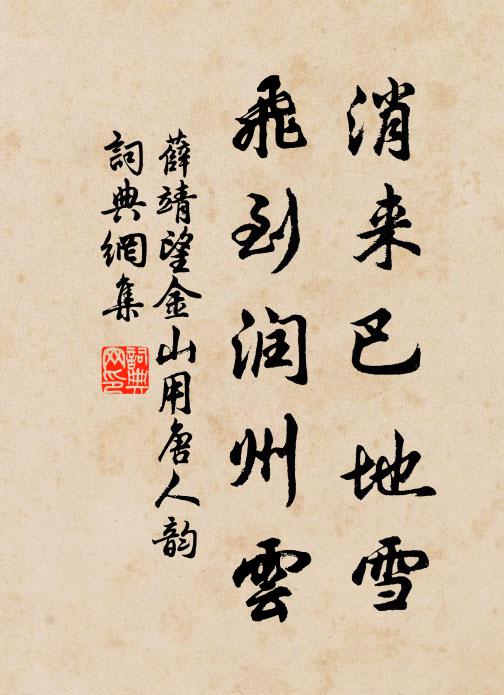 消来巴地雪
飛到润州雲
薛靖望金山用唐人韵
詞典網集
詞典網印